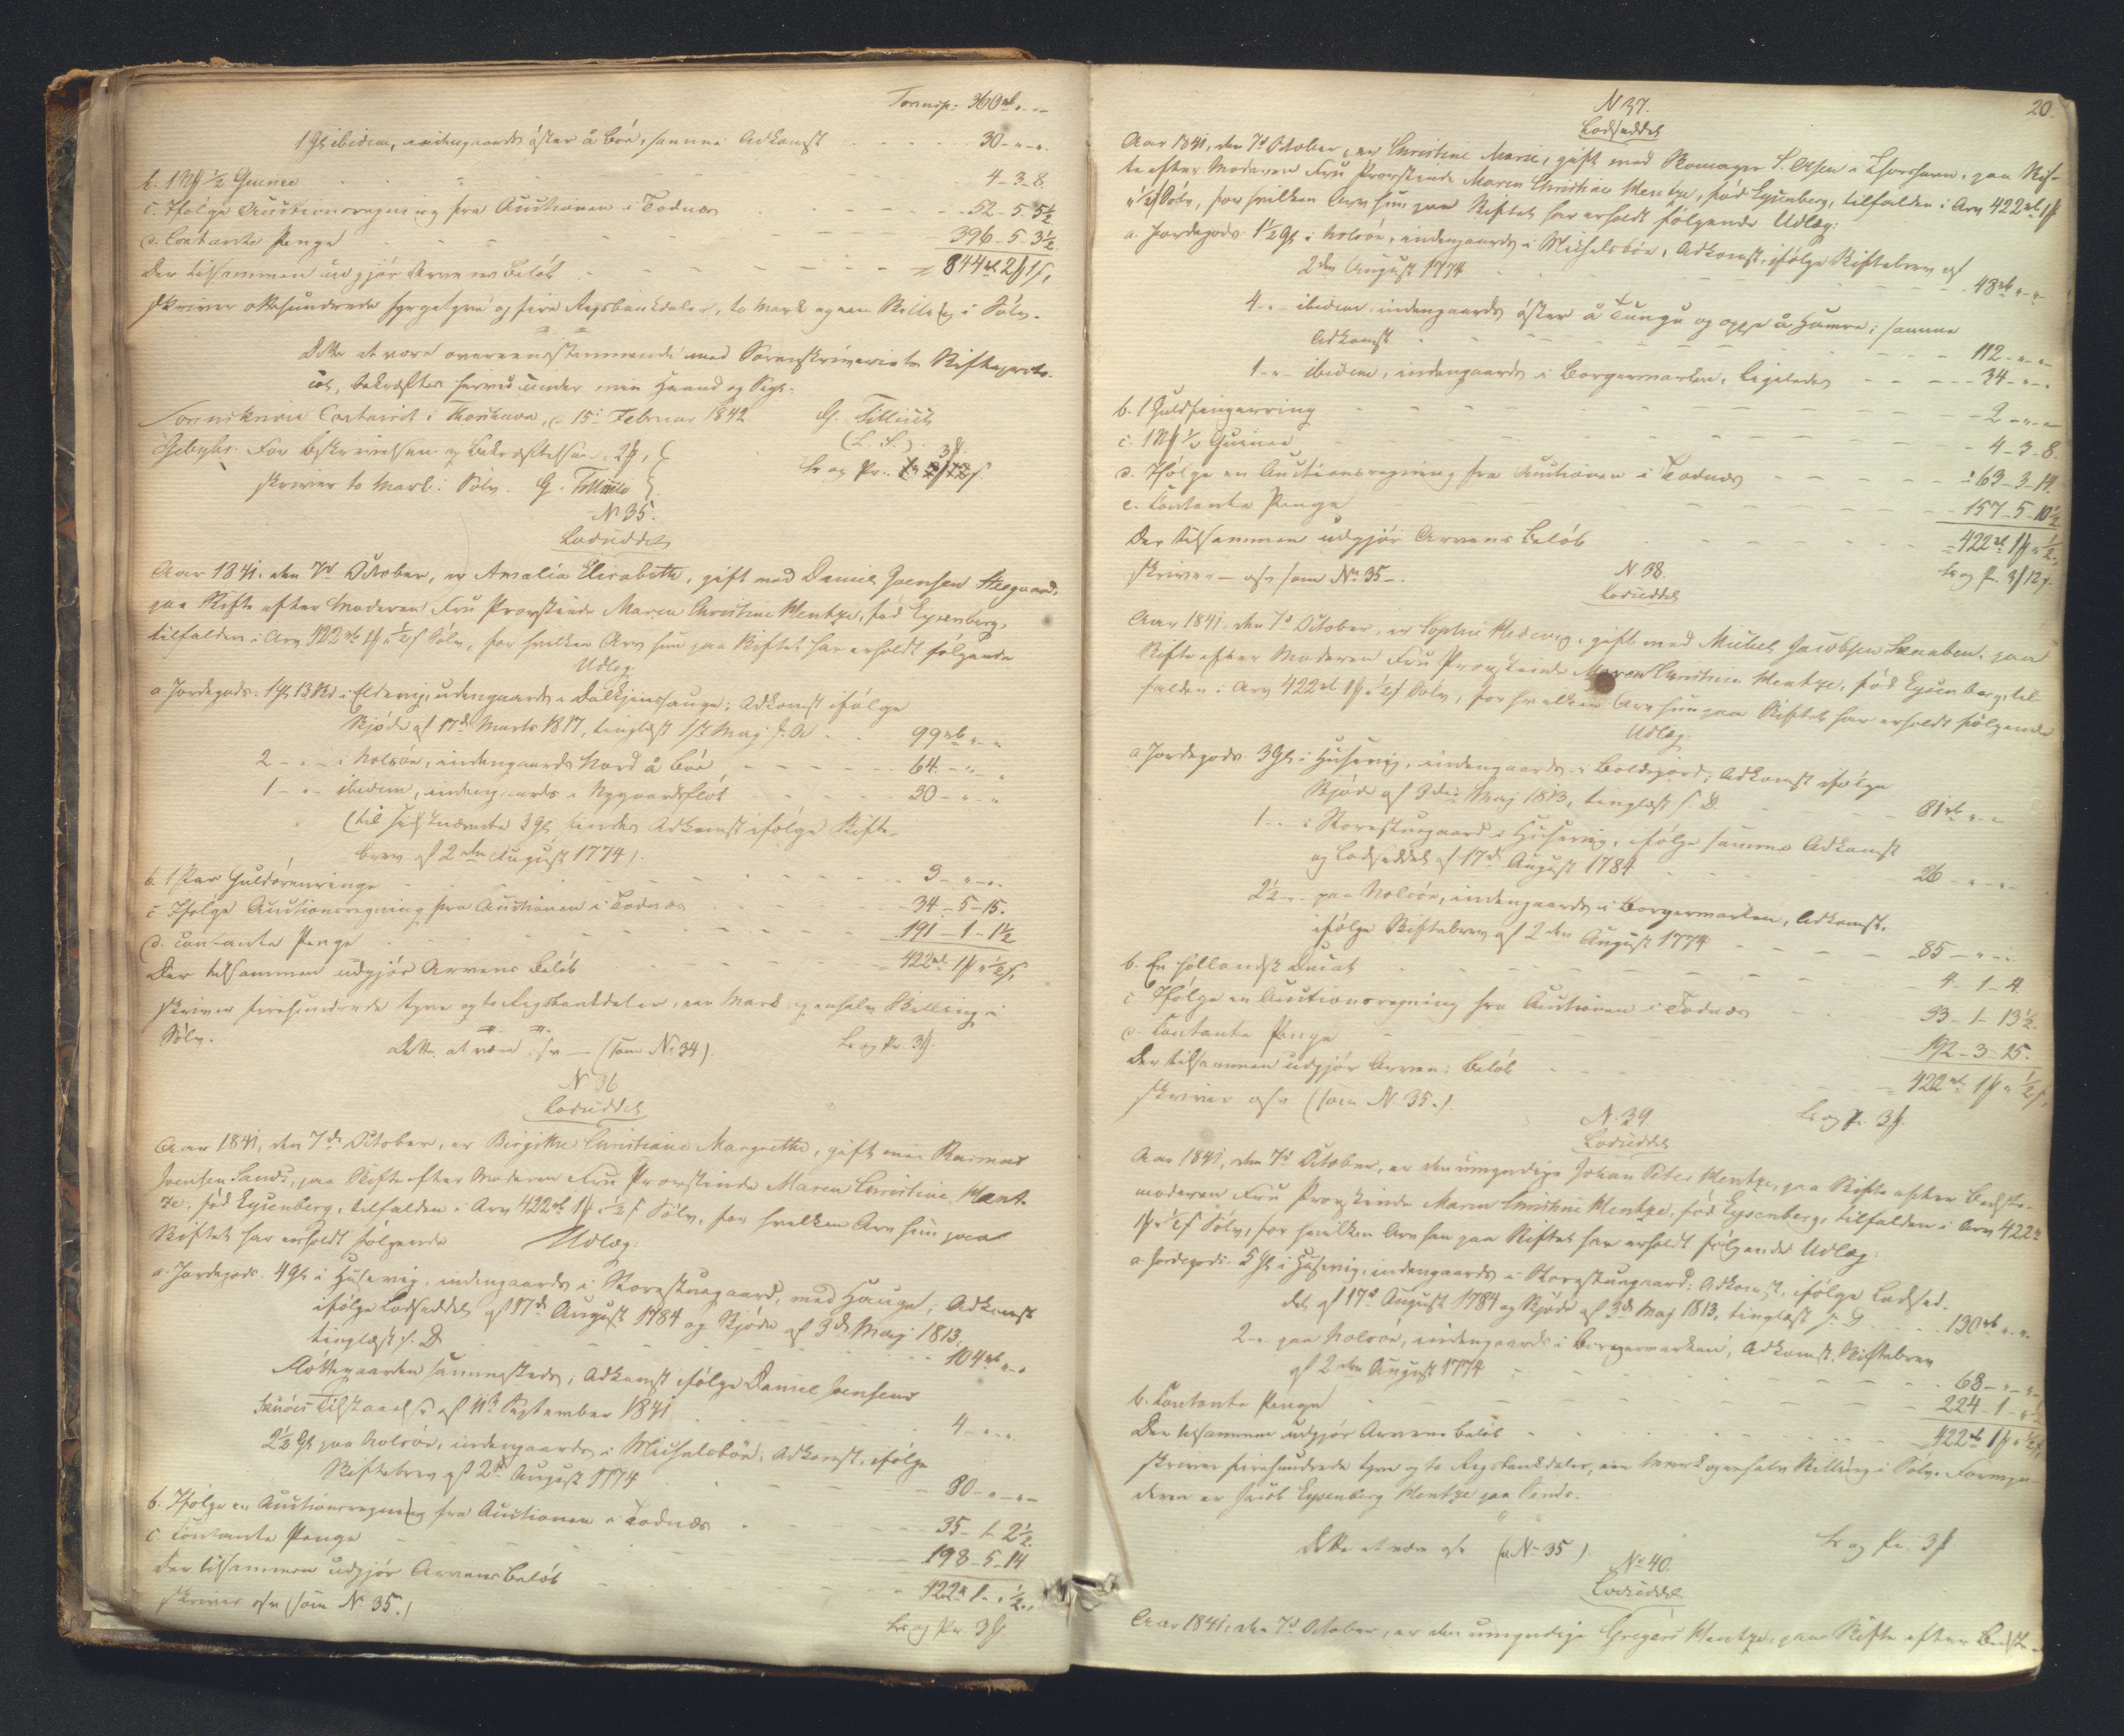 Transp: 360 rb " - "
1 Gl ibidem, indengaards öster å Böe, samme Adkomst 30 - " - ".
b. 1 St ½ Guinee 4 - 3 - 8.
c. Ifölge Auctionsregning fra Auctionen i Todnæs 52 - 5 - 5½
d. Contante Penge 396 - 5 - 3½
der tilsammen udgjör Arvens Belöb = 844 rb 2 ß 1 s,
skriver ottehundrede fyrgetyve og fire Rigsbankdaler, to Mark og een Skilling i Sölv.
Dette at være overeensstemmende med Sorenskriveriets Skifteproto-
col, bekræftes herved under min Haand og Segl.
Sorenskriver Contoiret i Thorshavn, d 15 Februar 1842 G. Tillisch
(L. S.)
Gebyhr: For Beskrivelsen og Bekræftelsen 2 ß,
skriver to Mark Sölv. G. Tillisch
N 35.
Lodseddel
Aar 1841. den 7d October, er Amalia Elisabeth, gift med Daniel Joensen
paa Skifte efter Moderen Fru Provstinde Maren Christine Wentze, föd Eysenberg,
tilfalden i Arv 422 rb 1 ß " ½ s Sölv, for hvilken Arv hun paa Skiftet har erholdt fölgende
Udlæg:
a Jordegods: 1 Gl 13 Sk i Eldevig, udengaards i Adkomst ifölge
Skjöde af 17d Marts 1817, tinglæst 1ste Maj s. A 99 rb " - "
2 - " - i Nolsöe, indengaards Nord å Böe 64 - " - "
1 - " - ibidem, indengaards i 20 - " - "
(til sidstnævnte 3 Gl findes Adkomst ifölge Skifte-
brev af 2den August 1774).
b. 1 Par Guldörenringe 3 - " - ".
c Ifölge Auctionsregning fra Auctionen i Todnæs 34 - 5 - 15.
d. Contante Penge 191 - 1 - 1½
Der tilsammen udgjör Arvens Belöb 422 rb 1 ß " ½ s,
skriver firehundrede tyve og to Rigsbankdaler, een Mark og en halv Skilling i
Sölv.
Dette at være osv — (som No 34). Ls og Pr. 3 ß.
N 36
Lodseddel
Aar 1841, den 7de October, er Birgitte Christiane Margrethe, gift med Rasmus
Joensen Sand, paa Skifte efter Moderen Fru Provstinde Maren Christine Went-
ze, föd Eysenberg, tilfalden i Arv 422 rb 1 ß " ½ s Sölv, for hvilken Arv hun paa
Skiftet har erholdt fölgende Udlæg:
a. Jordegods. 4 Gl i Husevig, indengaards i Storestuegaard, med Hauge; Adkomst
ifölge Lodseddel af 17d August 1784 og Skjöde af 3d Maj 1813,
tinglæst s. D 104 rb " - "
sammesteds; Adkomst ifölge Daniel Joensens
Tilstaaelse af 11te September 1841 4 - " - ".
2½ Gl paa Nolsöe, indengaards i Michelsböe, Adkomst, ifölge
Skiftebrev af 2d August 1774 80 - " - " -
b. Ifölge en Auctionsregning fra Auctionen i Todnæs 35 - 1 - 2½.
c Contante Penge 198 - 5 - 14
der tilsammen udgjör Arvens Belöb 422 rb 1 - " ½.
skriver osv (som No 35.)
Ls og Pr 3 ß
20.
N 37.
Lodseddel
Aar 1841, den 7d October, er Christine Marie, gift med S. Olsen i Thorshavn, paa Skif-
te efter Moderen Fru Provstinde Maren Christine Wentze, föd Eysenberg, tilfalden i Arv 422 rb 1 ß
" ½ s Sölv, for hvilken Arv hun paa Skiftet har erholdt fölgende Udlæg:
a. Jordegods 1½ Gl i Nolsöe, indengaards i Michelsböe, Adkomst, ifölge Skiftebrev af
2den August 1774 48 rb " - "
4 - " - ibidem, indengaards öster å Tungu og oppe å Hamre; samme
Adkomst 112 - " - "
1 - " - ibidem, indengaards i Borgarmarken, ligeledes 34 - " - "
b. 1 Guldfingerring 2 - " - "
c. 1 St ½ Guinee 4 - 3 - 8.
d. Ifölge en Auctionsregning fra Auctionen i Todnæs 63 - 3 - 14.
e. Contante Penge 157 - 5 - 10½
Der tilsammen udgjör Arvens Belöb = 422 rb 1 ß " ½.
skriver — osv som No 35 —. Ls og Pr. 3 ß 12 s.
N. 38.
Lodseddel
Aar 1841. den 7d October, er Sophie Hedevig, gift med Michel Jacobsen paa
Skifte efter Moderen Fru Provstinde Maren Christine Wentze, föd Eysenberg, til-
falden i Arv 422 rb 1 ß " ½ s Sölv, for hvilken Arv hun paa Skiftet har erholdt fölgende
Udlæg:
a. Jordegods 3 Gl i Husevig, indengaards i Adkomst ifölge
Skjöde af 3die Maj 1813, tinglæst s. D. 81 rb " - "
1 - " - i Storestuegaard i Husevig, ifölge samme Adkomst
og Lodseddel af 17d August 1784 26 - " - "
2½ - " - paa Nolsöe, indengaards i Borgarmarken, Adkomst,
ifölge Skiftebrev af 2den August 1774 85 - " - "
b. En hollandsk Ducat 4 - 1 - 4.
c Ifölge en Auctionsregning fra Auctionen i Todnæs 33 - 1 - 13½.
d. Contante Penge 192 - 3 - 15.
der tilsammen udgjör Arvens Belöb = 422 rb 1 ß " ½ s,
skriver osv (som N. 35.) Ls og Pr 3 ß.
N. 39.
Lodseddel
Aar 1841, den 7d October, er den umyndige Johan Peter Wentze, paa Skifte efter Bedste-
moderen Fru Provstinde Maren Christine Wentze, föd Eysenberg, tilfalden i Arv 422 rb
1 ß " ½ s Sölv, for hvilken Arv han paa Skiftet har erholdt fölgende Udlæg:
a. Jordegods. 5 Gl i Husevig, indengaards i Storestuegaard; Adkomst, ifölge Lodsed-
del af 17d August 1784 og Skjöde af 3d Maj 1813, tinglæst s. D 130 rb " - "
2 - " - paa Nolsöe, indengaards i Borgarmarken, Adkomst, Skiftebrev
af 2den August 1774 68 - " - "
b. Contante Penge 224 - 1 - " ½
Der tilsammen udgjör Arvens Belöb = 422 rb 1 ß " ½ s,
skriver firehundrede tyve og to Rigsbankdaler, een Mark og en halv Skilling i Sölv. Formyn-
deren er Jacob Eysenberg Wentze paa
Dette at være osv (s. No 35) Ls og Pr. 3 ß
No 40.
Lodseddel
Aar 1841, den 7d October, er den umyndige Gregers Wentze, paa Skifte efter Bedste-